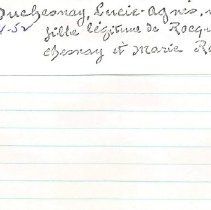 Duchesnay, Lucie-Agnès,
-52 fille légitime de Rocqu
chesnay et Marie Ro